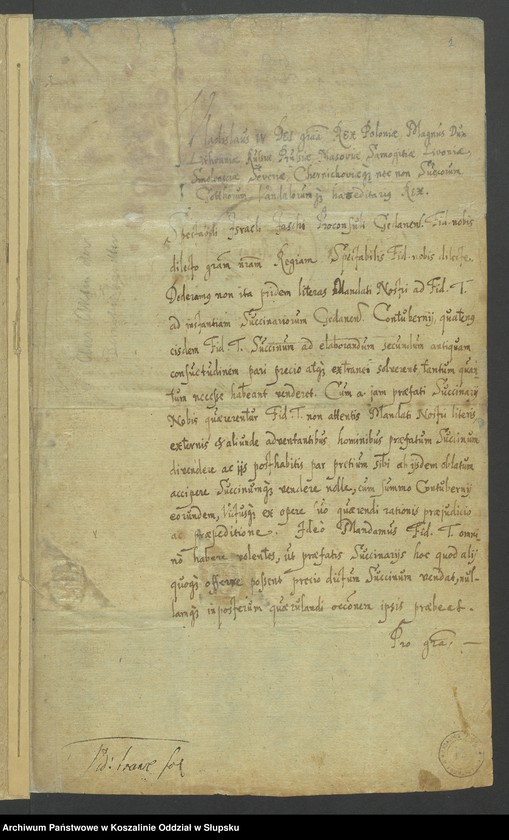 Vladislaus IV Dei gratia REX Poloniæ Magnus Dux
Lithuaniæ, Russiæ, Prussiæ, Masoviæ, Samogitiæ, Livoniæ,
Smolensciæ, Severiæ, Chernichoviæq3 nec non Suecorum
Gotthorum Vandalorumq3 hæreditariq REX.
Israeli Jaschi Proconsuli Gedanen. Fid. nobis
dilecto gram nram Regiam. Spectabilis Fid. nobis dilecte.
Dederamq non ita pridem literas Mandati Nostri ad Fid. T.
ad instantiam Succinariorum Gedanen. Contubernij, quateng
eisdem Fid. T. Succinum ad elaborandum secundum antiquam
consuetudinem pari precio atq3 extranei solverent, tantum quan
tum necesse habeant venderet. Cum a jam præfati Succinarij
Nobis quærerentur Fid. T. non attentis Mandati Nostri literis
externis & aliunde adventantibus hominibus præfatum Succinum
divendere ac ijs posthabitis par pretium sibi ab ijsdem oblatum
accipere Succinumq3 vendere nolle, cum summo Contubernij
eorundem, ex opere suo quærendi rationis præjudicio
ac præpeditione. Ideo Mandamus Fid. T. omni
nò habere volentes, ut præfatis Succinarijs hoc quod alij
quoq3 offerre possent precio dictum Succinum vendat, nul-
lamq3 in posterum quærulandi occonem ipsis præbeat.
Pro gra.
Archiwum Państwowe w Koszalinie Oddział w Słupsku